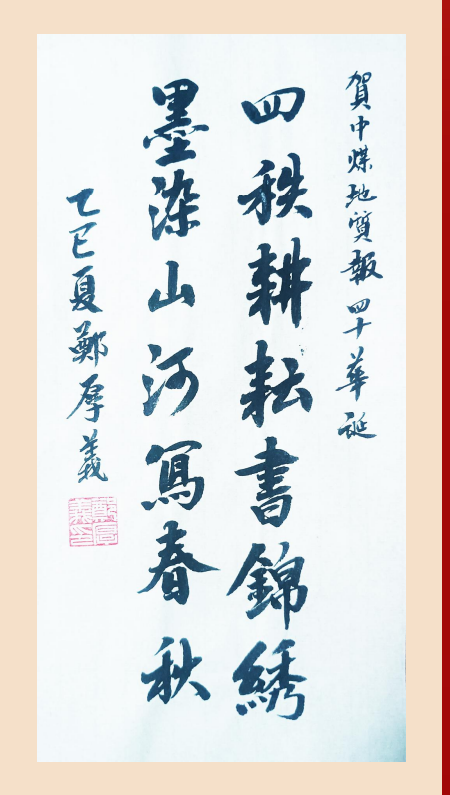 賀中煤地質報四十華誕
四秩耕耘書錦綉
墨染山河寫春秋
乙巳夏鄭厚義